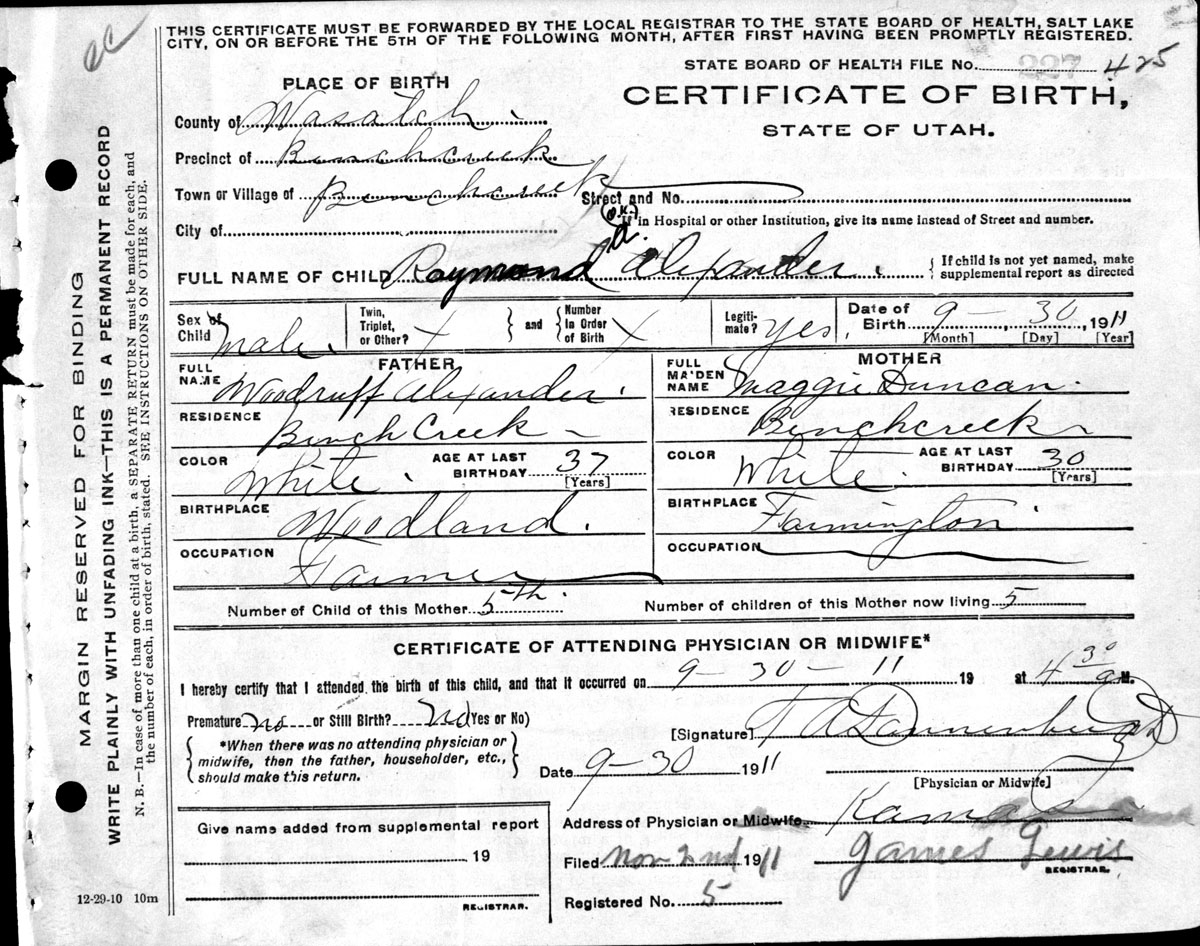 ec
THIS CERTIFICATE MUST BE FORWARDED BY THE LOCAL REGISTRAR TO THE STATE BOARD OF HEALTH, SALT LAKE
CITY, ON OR BEFORE THE 5TH OF THE FOLLOWING MONTH, AFTER FIRST HAVING BEEN PROMPTLY REGISTERED.
STATE BOARD OF HEALTH FILE No. 227 425
PLACE OF BIRTH
CERTIFICATE OF BIRTH,
STATE OF UTAH.
County of Wasatch
Precinct of Benchcreek
Town or Village of Benchcreek Street and No.
(If in Hospital or other Institution, give its name instead of Street and number.
City of
FULL NAME OF CHILD Raymond A. Alexander. { If child is not yet named, make
supplemental report as directed
Sex of Child Male. Twin, Triplet, or Other? X } and { Number In Order of Birth X Legiti-mate? Yes. Date of Birth 9 - 30, 1911
[Month] [Day] [Year]
FATHER
MOTHER
FULL NAME Woodruff Alexander.
FULL MAIDEN NAME Maggie Duncan.
RESIDENCE Binch Creek -
RESIDENCE Binchcreek
COLOR White. AGE AT LAST BIRTHDAY 37 [Years]
COLOR White. AGE AT LAST BIRTHDAY 30 [Years]
BIRTHPLACE Woodland.
BIRTHPLACE Farmington.
OCCUPATION Farmer
OCCUPATION
Number of Child of this Mother 5th. Number of children of this Mother now living 5
CERTIFICATE OF ATTENDING PHYSICIAN OR MIDWIFE*
I hereby certify that I attended the birth of this child, and that it occurred on 9 - 30 - 11 19 at 4 30 a M.
Premature No or Still Birth? No (Yes or No)
[Signature]
{ *When there was no attending physician or
midwife, then the father, householder, etc.,
should make this return. }
Date 9-30 1911
[Physician or Midwife]
Give name added from supplemental report
19
REGISTRAR.
Address of Physician or Midwife Kamas
Filed Nov 2nd 1911 James Lewis
REGISTRAR.
Registered No. 5
12-29-10 10m
MARGIN RESERVED FOR BINDING
WRITE PLAINLY WITH UNFADING INK—THIS IS A PERMANENT RECORD
N. B.—In case of more than one child at a birth, a SEPARATE RETURN must be made for each, and
the number of each, in order of birth, stated. SEE INSTRUCTIONS ON OTHER SIDE.